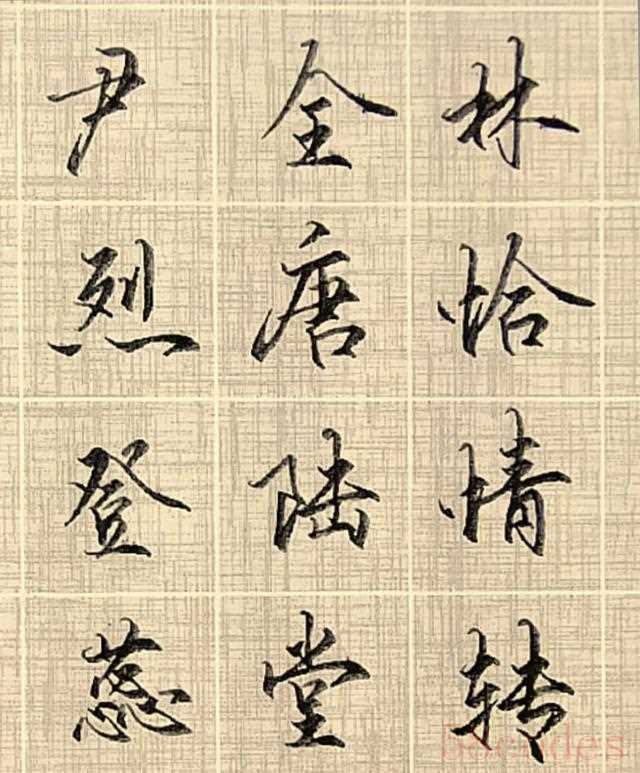 林恰情转
全唐陆堂
尹烈登蕊